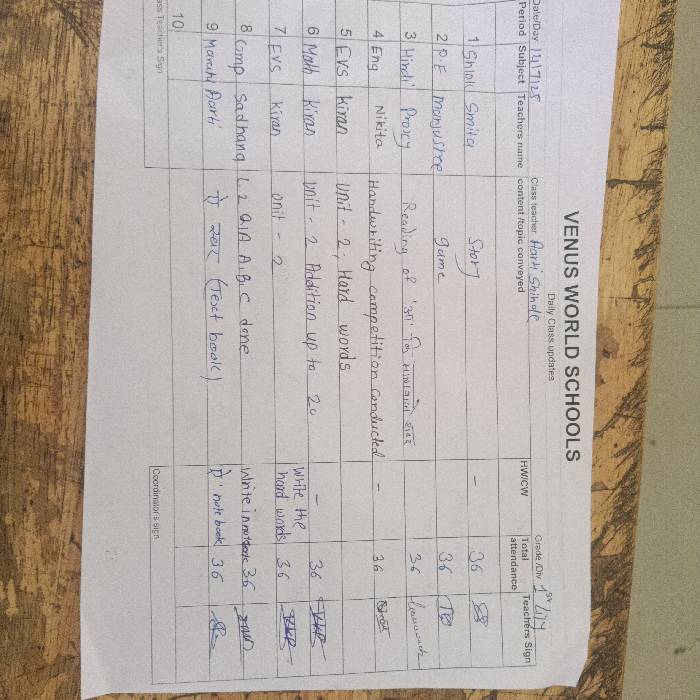 VENUS WORLD SCHOOLS
Daily Class updates
Date/Day 14/7/25 Class teacher Aarti Shinde Grade /Div 1st Lily
Period Subject Teachers name content /topic conveyed HW/CW Total attendance Teachers Sign
1 Shlok Smita Story - 36
2 P.E Manjushree game 36
3 Hindi Proxy Reading of 36
4 Eng Nikita Handwriting competition conducted - 36
5 EVS kiran Unit - 2, Hard words
6 Math kiran Unit - 2 Addition up to 20 - 36
7 EVS kiran Unit - 2 Write the hard words 36
8 Comp Sadhana L 2 Q/A A, B, C done Write in notebook 36
9 Marathi Aarti (Text book) notebook 36
10
Class Teacher's Sign Coordinator's sign